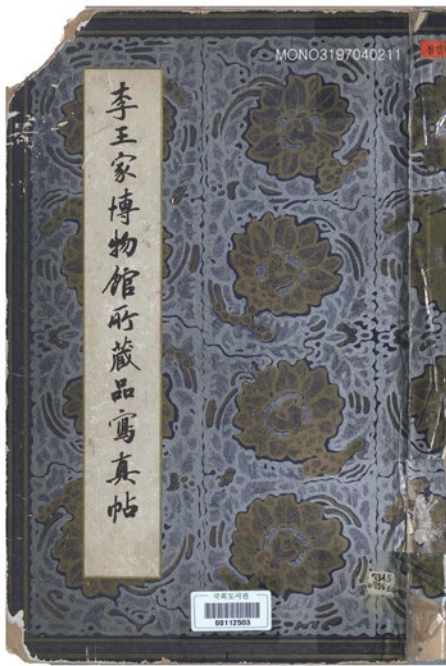 MONO3197040211
李王家博物館所蔵品寫真帖
국회도서관
00112503